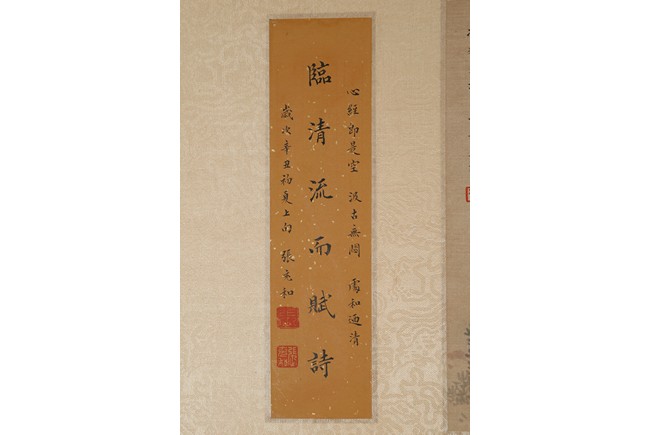 心經即是空 汲古無間 處和迺清
臨清流而賦詩
歲次辛丑初夏上雨 張充和